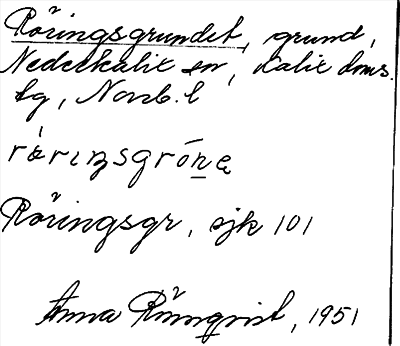 Röringsgrundet, grund,
Nederkalix sn, Kalix doms.
tg, Norrb. l
rǿrıŋsgrón̲ę
Röringsgr, sjk 101
Anna Rönnqvist, 1951